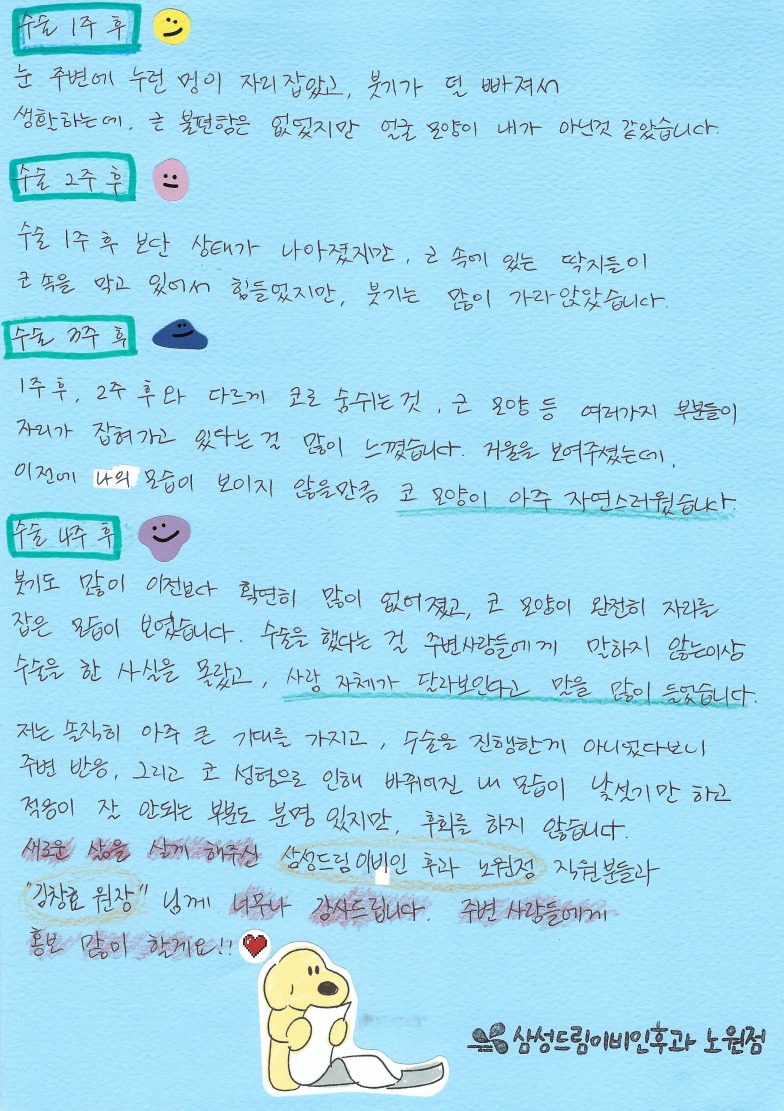 수술 1주 후
눈 주변에 누런 멍이 자리잡았고, 붓기가 덜 빠져서
생활하는데, 큰 불편함은 없었지만 얼굴 모양이 내가 아닌것 같았습니다.
수술 2주 후
수술 1주 후 보단 상태가 나아졌지만, 코 속에 있는 딱지들이
코 속을 막고 있어서 힘들었지만, 붓기는 많이 가라앉았습니다.
수술 3주 후
1주 후, 2주 후와 다르게 코로 숨쉬는것, 코 모양 등 여러가지 부분들이
자리가 잡혀가고 있다는걸 많이 느꼈습니다. 거울을 보여주셨는데,
이전에 나의 모습이 보이지 않을만큼 코 모양이 아주 자연스러웠습니다.
수술 4주 후
붓기도 많이 이전보다 확연히 많이 없어졌고, 코 모양이 완전히 자리를
잡은 모습이 보였습니다. 수술을 했다는 걸 주변사람들에게 말하지 않는이상
수술을 한 사실을 몰랐고, 사람 자체가 달라보인다고 말을 많이 들었습니다.
저는 솔직히 아주 큰 기대를 가지고, 수술을 진행한게 아니었다보니
주변 반응, 그리고 코 성형으로 인해 바뀌어진 내 모습이 낯설기만 하고
적응이 잘 안되는 부분도 분명 있지만, 후회를 하지 않습니다.
새로운 삶을 살게 해주신 삼성드림이비인 후과 노원점 직원분들과
"김창효 원장" 님께 너무나 감사드립니다. 주변 사람들에게
홍보 많이 할게요!!
삼성드림이비인후과 노원점